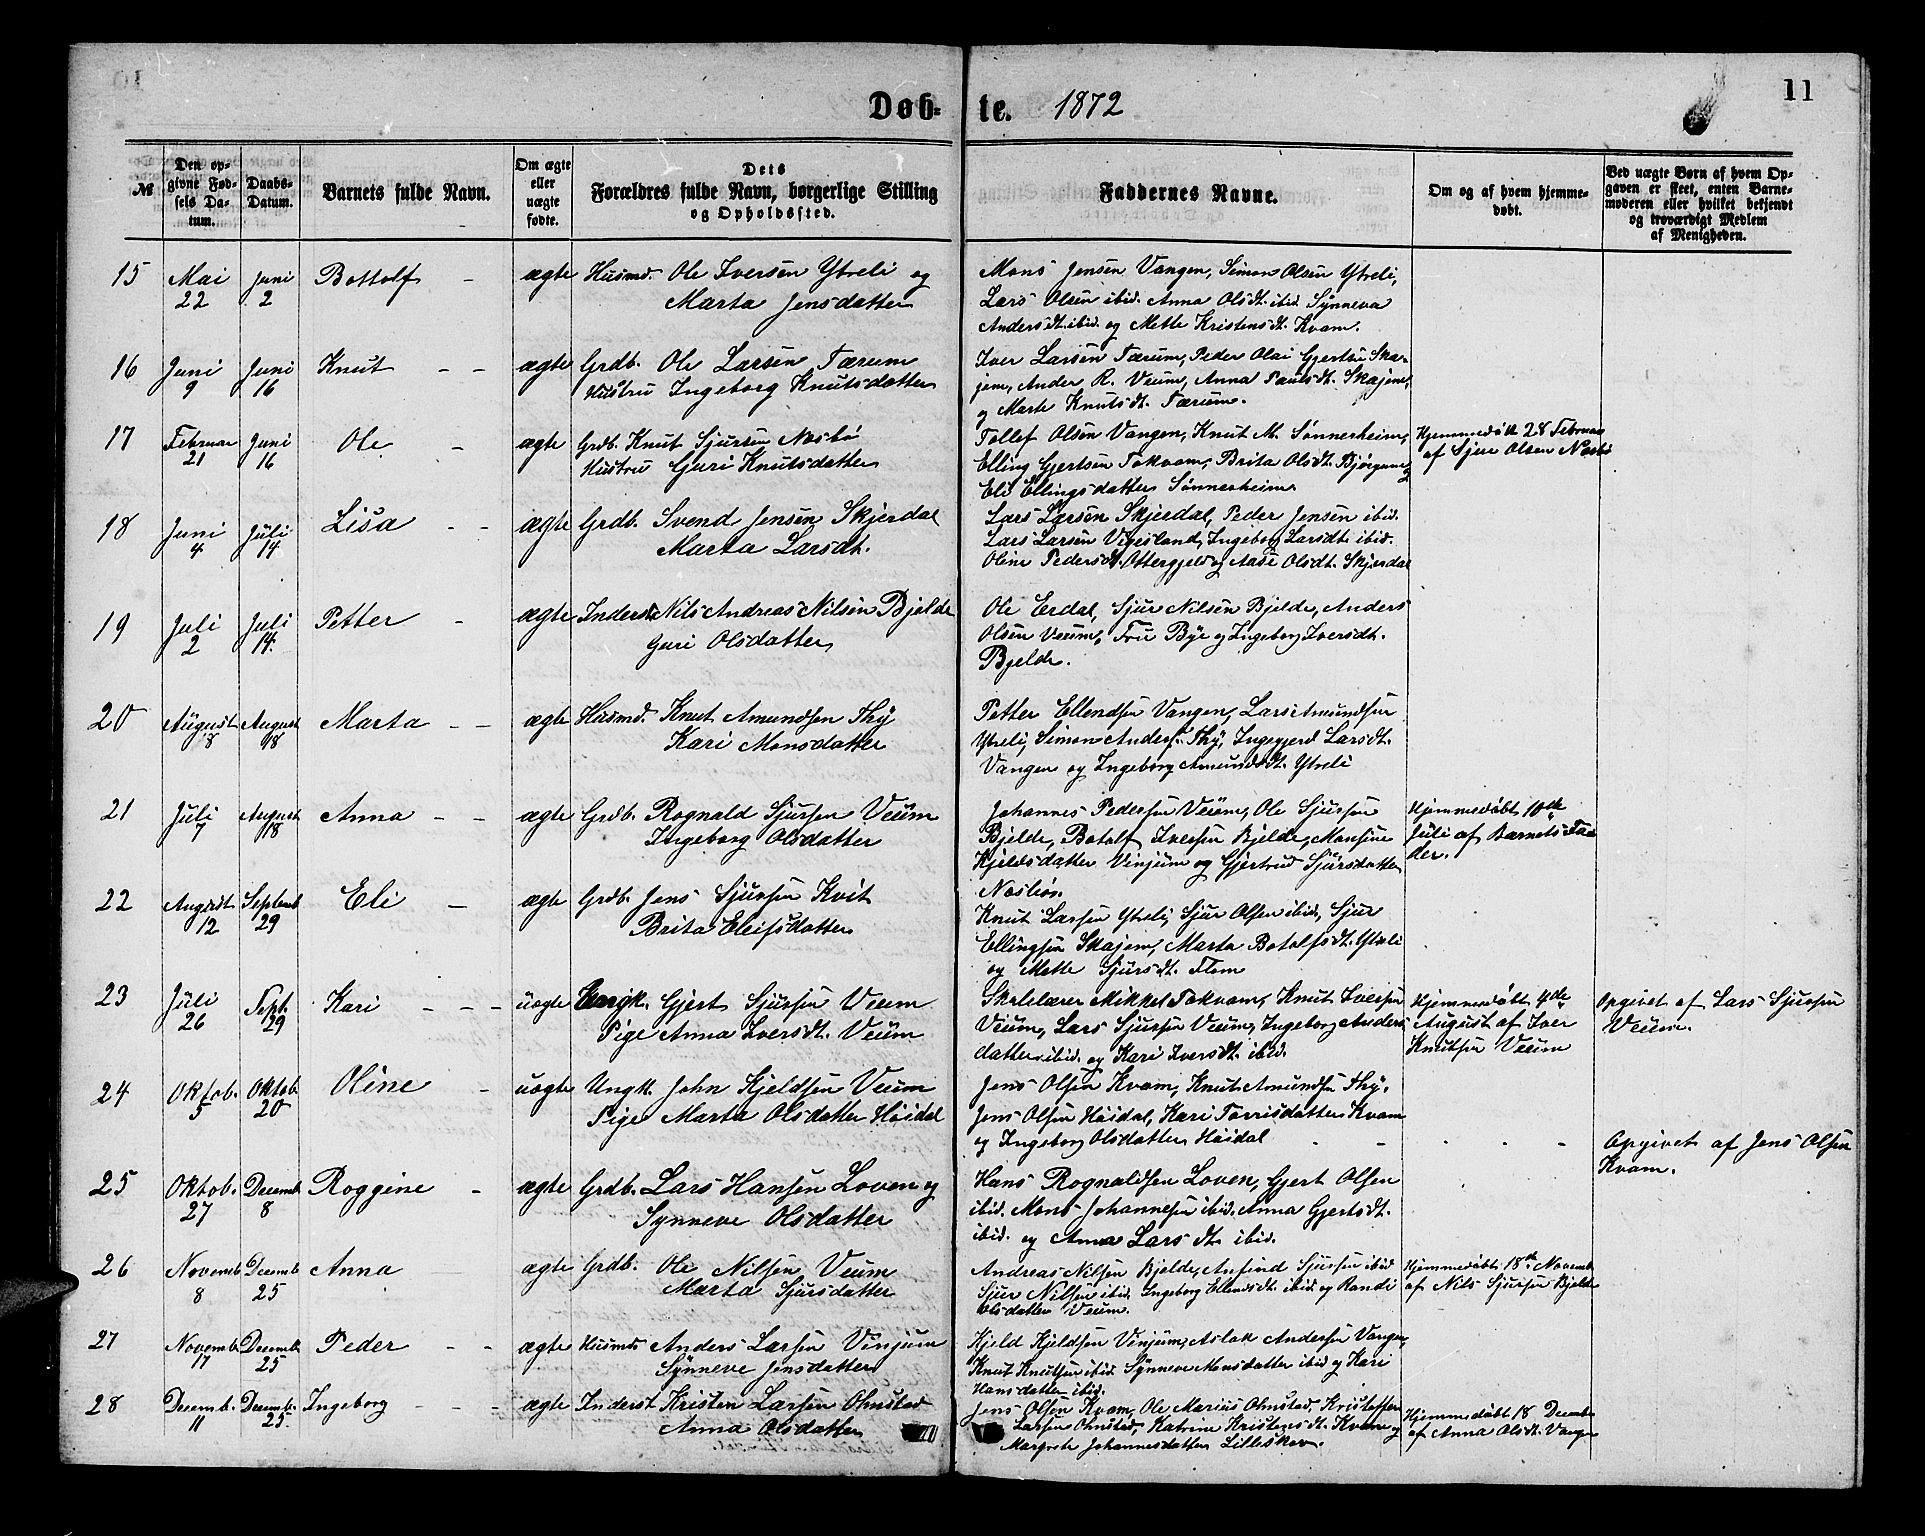 11
Døb-te. 1872
№
Den op-
givne Fød-
sels Da-
tum.
Daabs-
Datum.
Barnets fulde Navn.
Om ægte
eller
uægte
fødte.
Dets
Forældres fulde Navn, borgerlige Stilling
og Opholdssted.
Faddernes Navne.
Om og af hvem hjemme-
døbt.
Ved uægte Børn af hvem Op-
gaven er skeet, enten Barne-
moderen eller hvilket bekjendt
og troværdigt Medlem
af Menigheden.
15 Mai 22 Juni 2 Bottolf - ægte Husmd. Ole Iversen Ytreli og
Marta Jensdatter
Mons Jensen Vangen, Simon Olsen Ytreli,
Lars Olsen ibid. Anna Olsdt. ibid. Synneva
Andersdt. ibid. og Mette Kristensdt. Kvam.
16 Juni 9 Juni 16 Knut - - ægte Grdb. Ole Larsen Tærum
Hustru Ingeborg Knutsdatter
Iver Larsen Tærum, Peder Olai Gjertsen Ska-
jem, Ander R. Veum, Anna Paulsdt. Skajem,
og Marte Knutsdt. Tærum.
17 Februar 21 Juni 16 Ole - ægte Grdb. Knut Sjursen Nosbø
Hustru Guri Knutsdatter
Tollef Olsen Vangen, Knut M. Sønnerheim,
Elling Gjertsen Tokvam, Brita Olsdt. Bjørgum og
Eli Ellingsdatter Sønnerheim.
Hjemmedøbt 28 Februar
af Sjur Olsen Nosbø
18 Juni 4 Juli 14 Lisa - - ægte Grdb. Svend Jensen Skjerdal
Marta Larsdt.
Lars Larsen Skjerdal, Peder Jensen ibid.
Lars Larsen Vigesland, Ingeborg Larsdt. ibid.
Oline Pedersdt. Ottergjeld og Aase Olsdt. Skjerdal
19 Juli 2 Juli 14. Petter - ægte Inderst Nils Andreas Nilsen Bjelde
Guri Olsdatter
Ole Erdal, Sjur Nilsen Bjelde, Anders
Olsen Veum, Fru Bye og Ingeborg Iversdt.
Bjelde.
20 August 8 August 18 Marta - - ægte Husmd. Knut Amundsen Thy
Kari Monsdatter
Petter Ellendsen Vangen, Lars Amundsen
Ytreli, Simon Anders. Thy, Ingegjerd Larsdt.
Vangen og Ingeborg Amundsdt. Ytreli
21 Juli 7 August 18 Anna - - ægte Grdb. Rognald Sjursen Veum
Ingeborg Olsdatter
Johannes Pedersen Veum, Ole Sjursen
Bjelde, Botolf Iversen Bjelde, Monsine
Kjeldsdatter Vinjum og Gjertrud Sjursdatter
Nosbø.
Hjemmedøbt 10de
Juli af Barnets Fa-
der.
22 August 12 Septemb 29 Eli - ægte Grdb. Jens Sjursen Kvit
Brita Eleifsdatter
Knut Larsen Ytreli, Sjur Olsen ibid, Sjur
Ellingsen Skajem, Marta Botolfsdt. Ytreli
og Mette Sjursdt. Flom
23 Juli 26 Sept. 29 Kari - - - uægte Ungk. Gjert Sjursen Veum
Pige Anna Iversdt. Veum
Skolelærer Mikkel Tokvam, Knut Iversen
Veum, Lars Sjursen Veum, Ingeborg Anders-
datter ibid. og Kari Iversdt. ibid.
Hjemmedøbt 4de
August af Iver
Knutsen Veum
Opgivet af Lars Sjursen
Veum.
24 Oktob. 5 Oktob. 20 Oline - uægte Ungk. John Kjeldsen Veum
Pige Marta Olsdatter Høidal
Jens Olsen Kvam, Knut Amundsen Thy,
Jens Olsen Høidal, Kari Torrisdatter Kvam
og Ingeborg Olsdatter Høidal - - - -
Opgivet af Jens Olsen
Kvam.
25 Oktob. 27 Decemb 8 Roggine - ægte Grdb. Lars Hansen Loven og
Synneve Olsdatter
Hans Rognaldsen Loven, Gjert Olsen
ibid. Mons Johannesen ibid. Anna Gjertsdt.
ibid. og Anna Larsdt. ibid.
26 Novemb 8 Decemb 25 Anna ægte Grdb. Ole Nilsen Veum
Marta Sjursdatter
Andreas Nilsen Bjelde, Anfind Sjursen ibid
Sjur Nilsen ibid. Ingeborg Ellendsdt. ibid og Randi
Olsdatter Veum.
Hjemmedøbt 18de Novemb
af Nils Sjursen Bjelde
27 Novemb 17 Decemb 25 Peder - - ægte Husmd Anders Larsen Vinjum
Synneve Jensdatter
Kjeld Kjeldsen Vinjum, Aslak Andersen Vangen,
Knut Knutsen ibid. Synneve Monsdatter ibid og Kari
Hansdatter ibid.
28 Decemb. 11 Decemb. 25 Ingeborg - - - ægte Inderst Kristen Larsen Ohnstad
Anna Olsdatter
Jens Olsen Kvam, Ole Marius Ohnstad, Kristoffer
Larsen Ohnstad, Katrine Kristensdt. Kvam og
Margrete Johannesdatter Lilleskov.
Hjemmedøbt 18 Decemb
af Anna Olsdt. Vangen